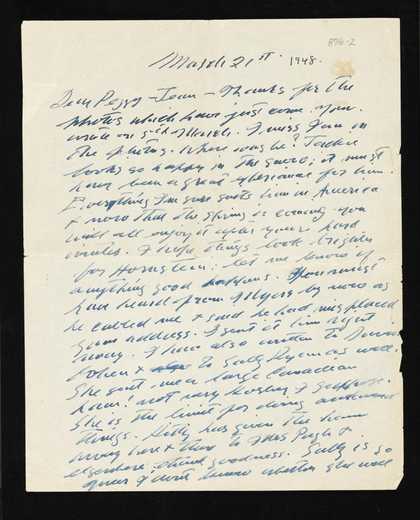 876-2
March 21st. 1948.
Dear Peggy – Jean – Thanks for the
photos which have just come. You
wrote on 5th March. I miss Ian in
the photos. Where was he? Jackie
looks so happy in the snow; it must
have been a great experience for him.
Everything I'm sure suits him in America
& now that the spring is coming you
will all enjoy it after your hard
winter. I hope things look brighter
for Hornstein; let me know if
anything good happens. You must
have heard from Myers by now as
he cabled me & said he had misplaced
your address. I sent it him right
away. I have also written to
Cohen & to Sally Ryan as well.
She sent me a large Canadian
ham! not very Kosher I suppose.
She is the limit for doing awkward
things. Kitty has given the ham
away here & there to Mrs Pugh &
elsewhere, thank goodness. Sally is so
queer I don't know whether she will